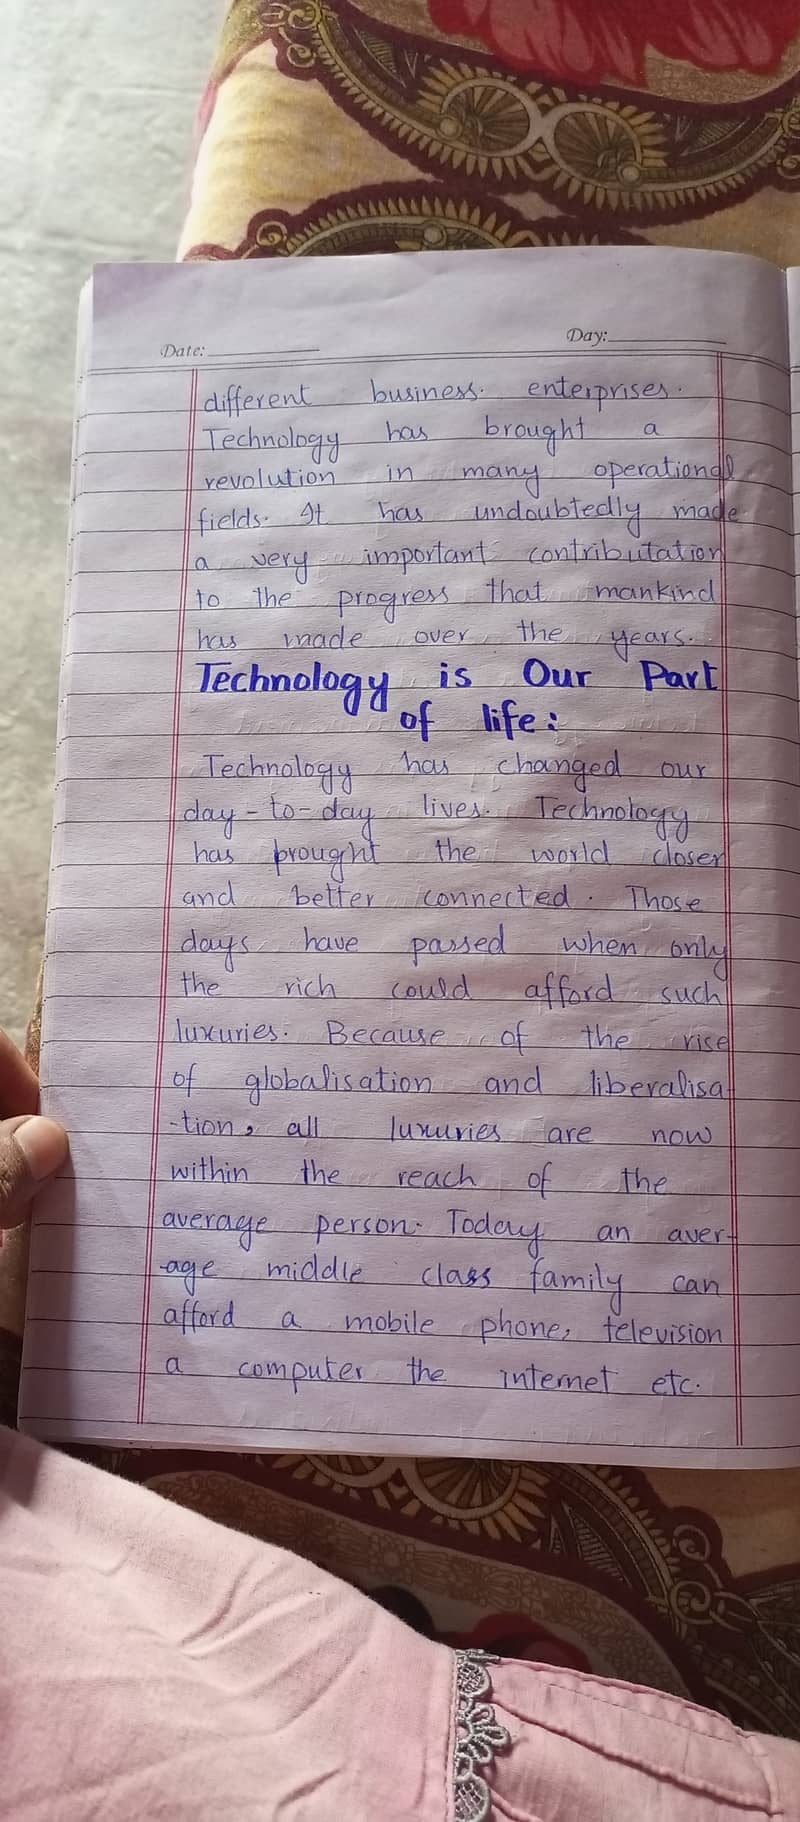 Date:
Day:
different business. enterprises.
Technology has brought a
revolution in many operational
fields. It has undoubtedly made
a very important contributation
to the progress that mankind
has made over the years.
Technology is Our Part
of life:
Technology has changed our
day-to-day lives. Technology
has brought the world closer
and better connected. Those
days have passed when only
the rich could afford such
luxuries. Because of the rise
of globalisation and liberalisa
-tion, all luxuries are now
within the reach of the
average person. Today an aver-
-age middle class family can
afford a mobile phone, television
a computer the internet etc.